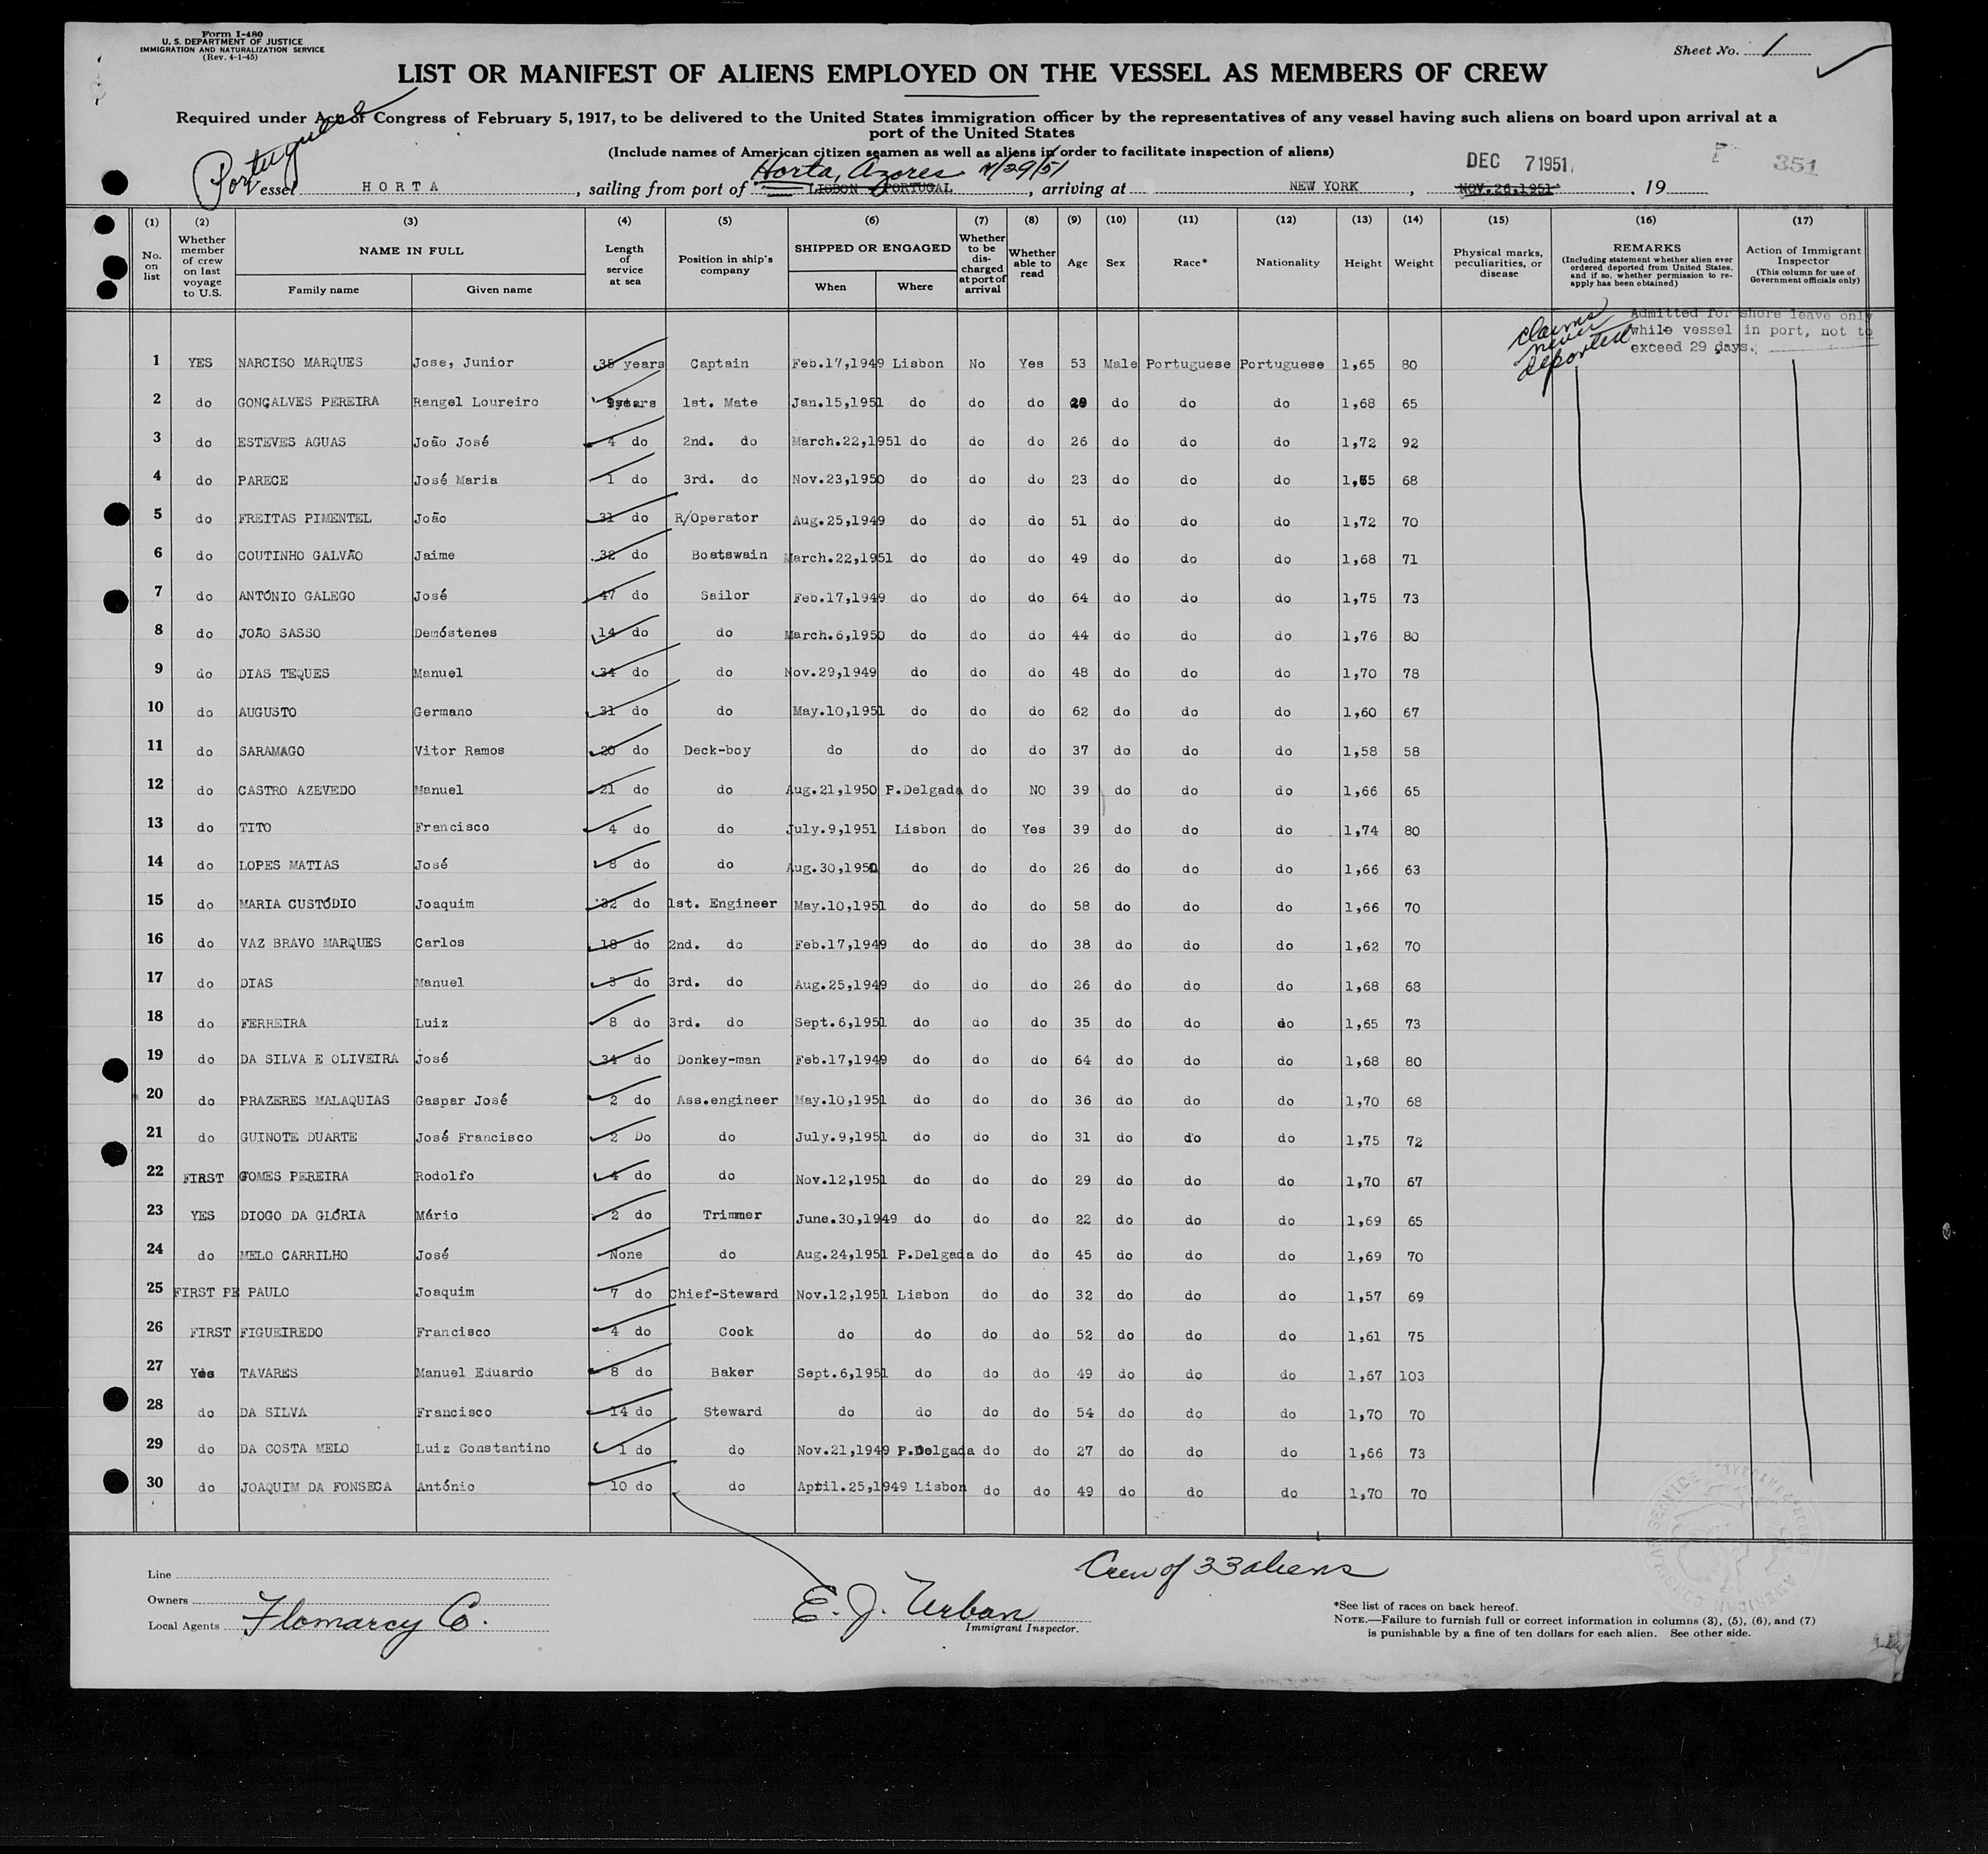 Form I-480
U. S. DEPARTMENT OF JUSTICE
IMMIGRATION AND NATURALIZATION SERVICE
(Rev. 4-1-45)
Sheet No. 1
LIST OR MANIFEST OF ALIENS EMPLOYED ON THE VESSEL AS MEMBERS OF CREW
Required under Act of Congress of February 5, 1917, to be delivered to the United States immigration officer by the representatives of any vessel having such aliens on board upon arrival at a
port of the United States
(Include names of American citizen seamen as well as aliens in order to facilitate inspection of aliens)
Portuguese
Horta, Azores 11/29/51
DEC 7 1951
351
Vessel HORTA, sailing from port of LISBON - PORTUGAL, arriving at NEW YORK, NOV.26,1951, 19
(1) (2) (3) (4) (5) (6) (7) (8) (9) (10) (11) (12) (13) (14) (15) (16) (17)
No. on list
Whether member of crew on last voyage to U.S.
NAME IN FULL
Family name
Given name
Length of service at sea
Position in ship's company
SHIPPED OR ENGAGED
When
Where
Whether to be discharged at port of arrival
Whether able to read
Age
Sex
Race*
Nationality
Height
Weight
Physical marks, peculiarities, or disease
REMARKS
(Including statement whether alien ever ordered deported from United States, and if so, whether permission to re-apply has been obtained)
Action of Immigrant Inspector
(This column for use of Government officials only)
claims never deported
Admitted for shore leave only
while vessel in port, not to
exceed 29 days.
1 YES NARCISO MARQUES Jose, Junior 35 years Captain Feb.17,1949 Lisbon No Yes 53 Male Portuguese Portuguese 1,65 80
2 do GONÇALVES PEREIRA Rangel Loureiro 9years 1st. Mate Jan.15,1951 do do do 29 do do do 1,68 65
3 do ESTEVES AGUAS João José 4 do 2nd. do March.22,1951 do do do 26 do do do 1,72 92
4 do PARECE José Maria 1 do 3rd. do Nov.23,1950 do do do 23 do do do 1,65 68
5 do FREITAS PIMENTEL João 31 do R/Operator Aug.25,1949 do do do 51 do do do 1,72 70
6 do COUTINHO GALVÃO Jaime 32 do Boatswain March.22,1951 do do do 49 do do do 1,68 71
7 do ANTÓNIO GALEGO José 47 do Sailor Feb.17,1949 do do do 64 do do do 1,75 73
8 do JOÃO SASSO Demóstenes 14 do do March.6,1950 do do do 44 do do do 1,76 80
9 do DIAS TEQUES Manuel 34 do do Nov.29,1949 do do do 48 do do do 1,70 78
10 do AUGUSTO Germano 31 do do May.10,1951 do do do 62 do do do 1,60 67
11 do SARAMAGO Vitor Ramos 20 do Deck-boy do do do do 37 do do do 1,58 58
12 do CASTRO AZEVEDO Manuel 21 do do Aug.21,1950 P.Delgada do NO 39 do do do 1,66 65
13 do TITO Francisco 4 do do July.9,1951 Lisbon do Yes 39 do do do 1,74 80
14 do LOPES MATIAS José 8 do do Aug.30,1950 do do do 26 do do do 1,66 63
15 do MARIA CUSTÓDIO Joaquim 32 do 1st. Engineer May.10,1951 do do do 58 do do do 1,66 70
16 do VAZ BRAVO MARQUES Carlos 18 do 2nd. do Feb.17,1949 do do do 38 do do do 1,62 70
17 do DIAS Manuel 3 do 3rd. do Aug.25,1949 do do do 26 do do do 1,68 68
18 do FERREIRA Luiz 8 do 3rd. do Sept.6,1951 do do do 35 do do do 1,65 73
19 do DA SILVA E OLIVEIRA José 34 do Donkey-man Feb.17,1949 do do do 64 do do do 1,68 80
20 do PRAZERES MALAQUIAS Gaspar José 2 do Ass.engineer May.10,1951 do do do 36 do do do 1,70 68
21 do GUINOTE DUARTE José Francisco 2 Do do July.9,1951 do do do 31 do do do 1,75 72
22 FIRST GOMES PEREIRA Rodolfo 4 do do Nov.12,1951 do do do 29 do do do 1,70 67
23 YES DIOGO DA GLÓRIA Mário 2 do Trimmer June.30,1949 do do do 22 do do do 1,69 65
24 do MELO CARRILHO José None do Aug.24,1951 P.Delgada do do 45 do do do 1,69 70
25 FIRST PE PAULO Joaquim 7 do Chief-Steward Nov.12,1951 Lisbon do do 32 do do do 1,57 69
26 FIRST FIGUEIREDO Francisco 4 do Cook do do do do 52 do do do 1,61 75
27 Yes TAVARES Manuel Eduardo 8 do Baker Sept.6,1951 do do do 49 do do do 1,67 103
28 do DA SILVA Francisco 14 do Steward do do do do 54 do do do 1,70 70
29 do DA COSTA MELO Luiz Constantino 1 do do Nov.21,1949 P.Delgada do do 27 do do do 1,66 73
30 do JOAQUIM DA FONSECA António 10 do do April.25,1949 Lisbon do do 49 do do do 1,70 70
Crew of 33 aliens
Line
Owners
Local Agents Flomarcy Co.
E. J. Urban
Immigrant Inspector.
*See list of races on back hereof.
NOTE.—Failure to furnish full or correct information in columns (3), (5), (6), and (7)
is punishable by a fine of ten dollars for each alien. See other side.